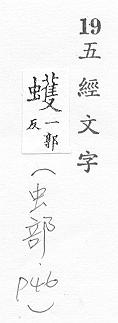 19 五經文字
蠖
一郭
反
(虫部.p46)